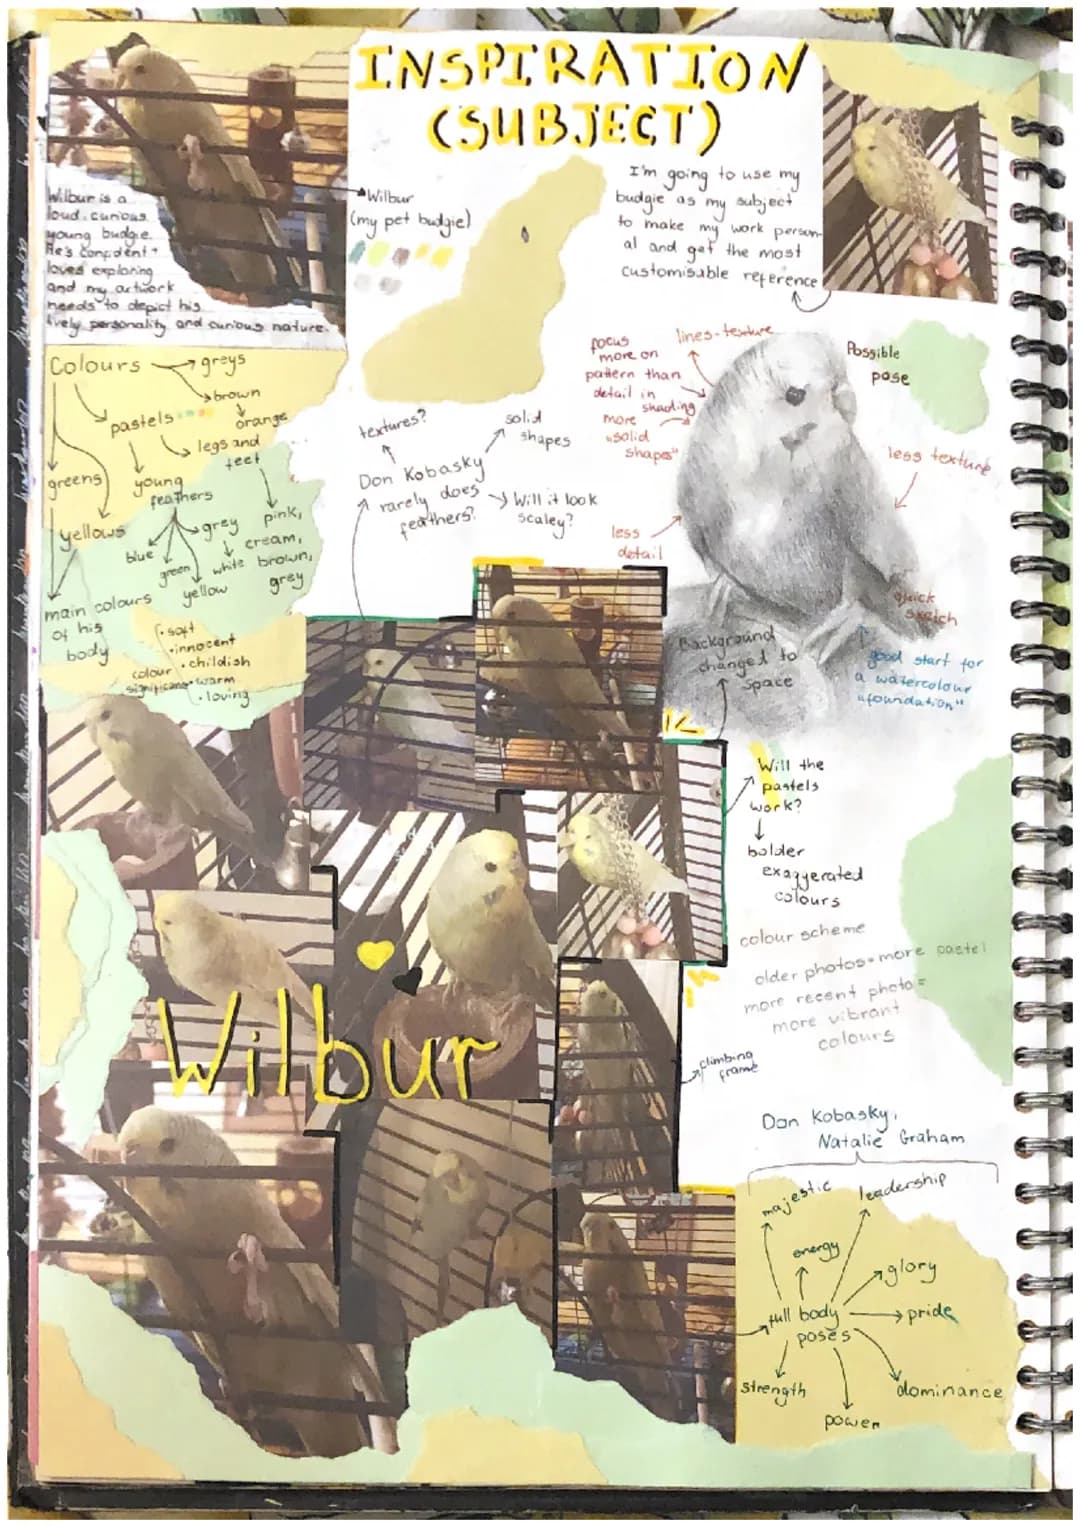 INSPIRATION
(SUBJECT)
Wilbur is a
loud, curious
young budgie.
He's confident +
loves exploring
and my artwork
needs to depict his
lively personality and curious nature.
Wilbur
(my pet budgie)
I'm going to use my
budgie as my subject
to make my work person-
al and get the most
customisable reference
Colours
greys
brown
orange
pastels
legs and
feet
greens
young
feathers
yellows
blue
green
yellow
grey
white
pink,
cream,
brown,
grey
main colours
of his
body
colour
significance
• soft
• innocent
• childish
• warm
• loving
textures?
solid
shapes
Don Kobasky
rarely does
feathers?
Will it look
scaley?
focus
more on
pattern than
detail in
shading
lines-texture
more
"solid
shapes"
less
detail
Possible
pose
less texture
quick
sketch
good start for
a watercolour
"foundation"
Background
changed to
space
Will the
pastels
work?
bolder
exaggerated
colours
colour scheme
older photos=more pastel
more recent photo=
more vibrant
colours
climbing
frame
Wilbur
Don Kobasky,
Natalie Graham
majestic
leadership
energy
glory
full body
poses
pride
strength
dominance
power